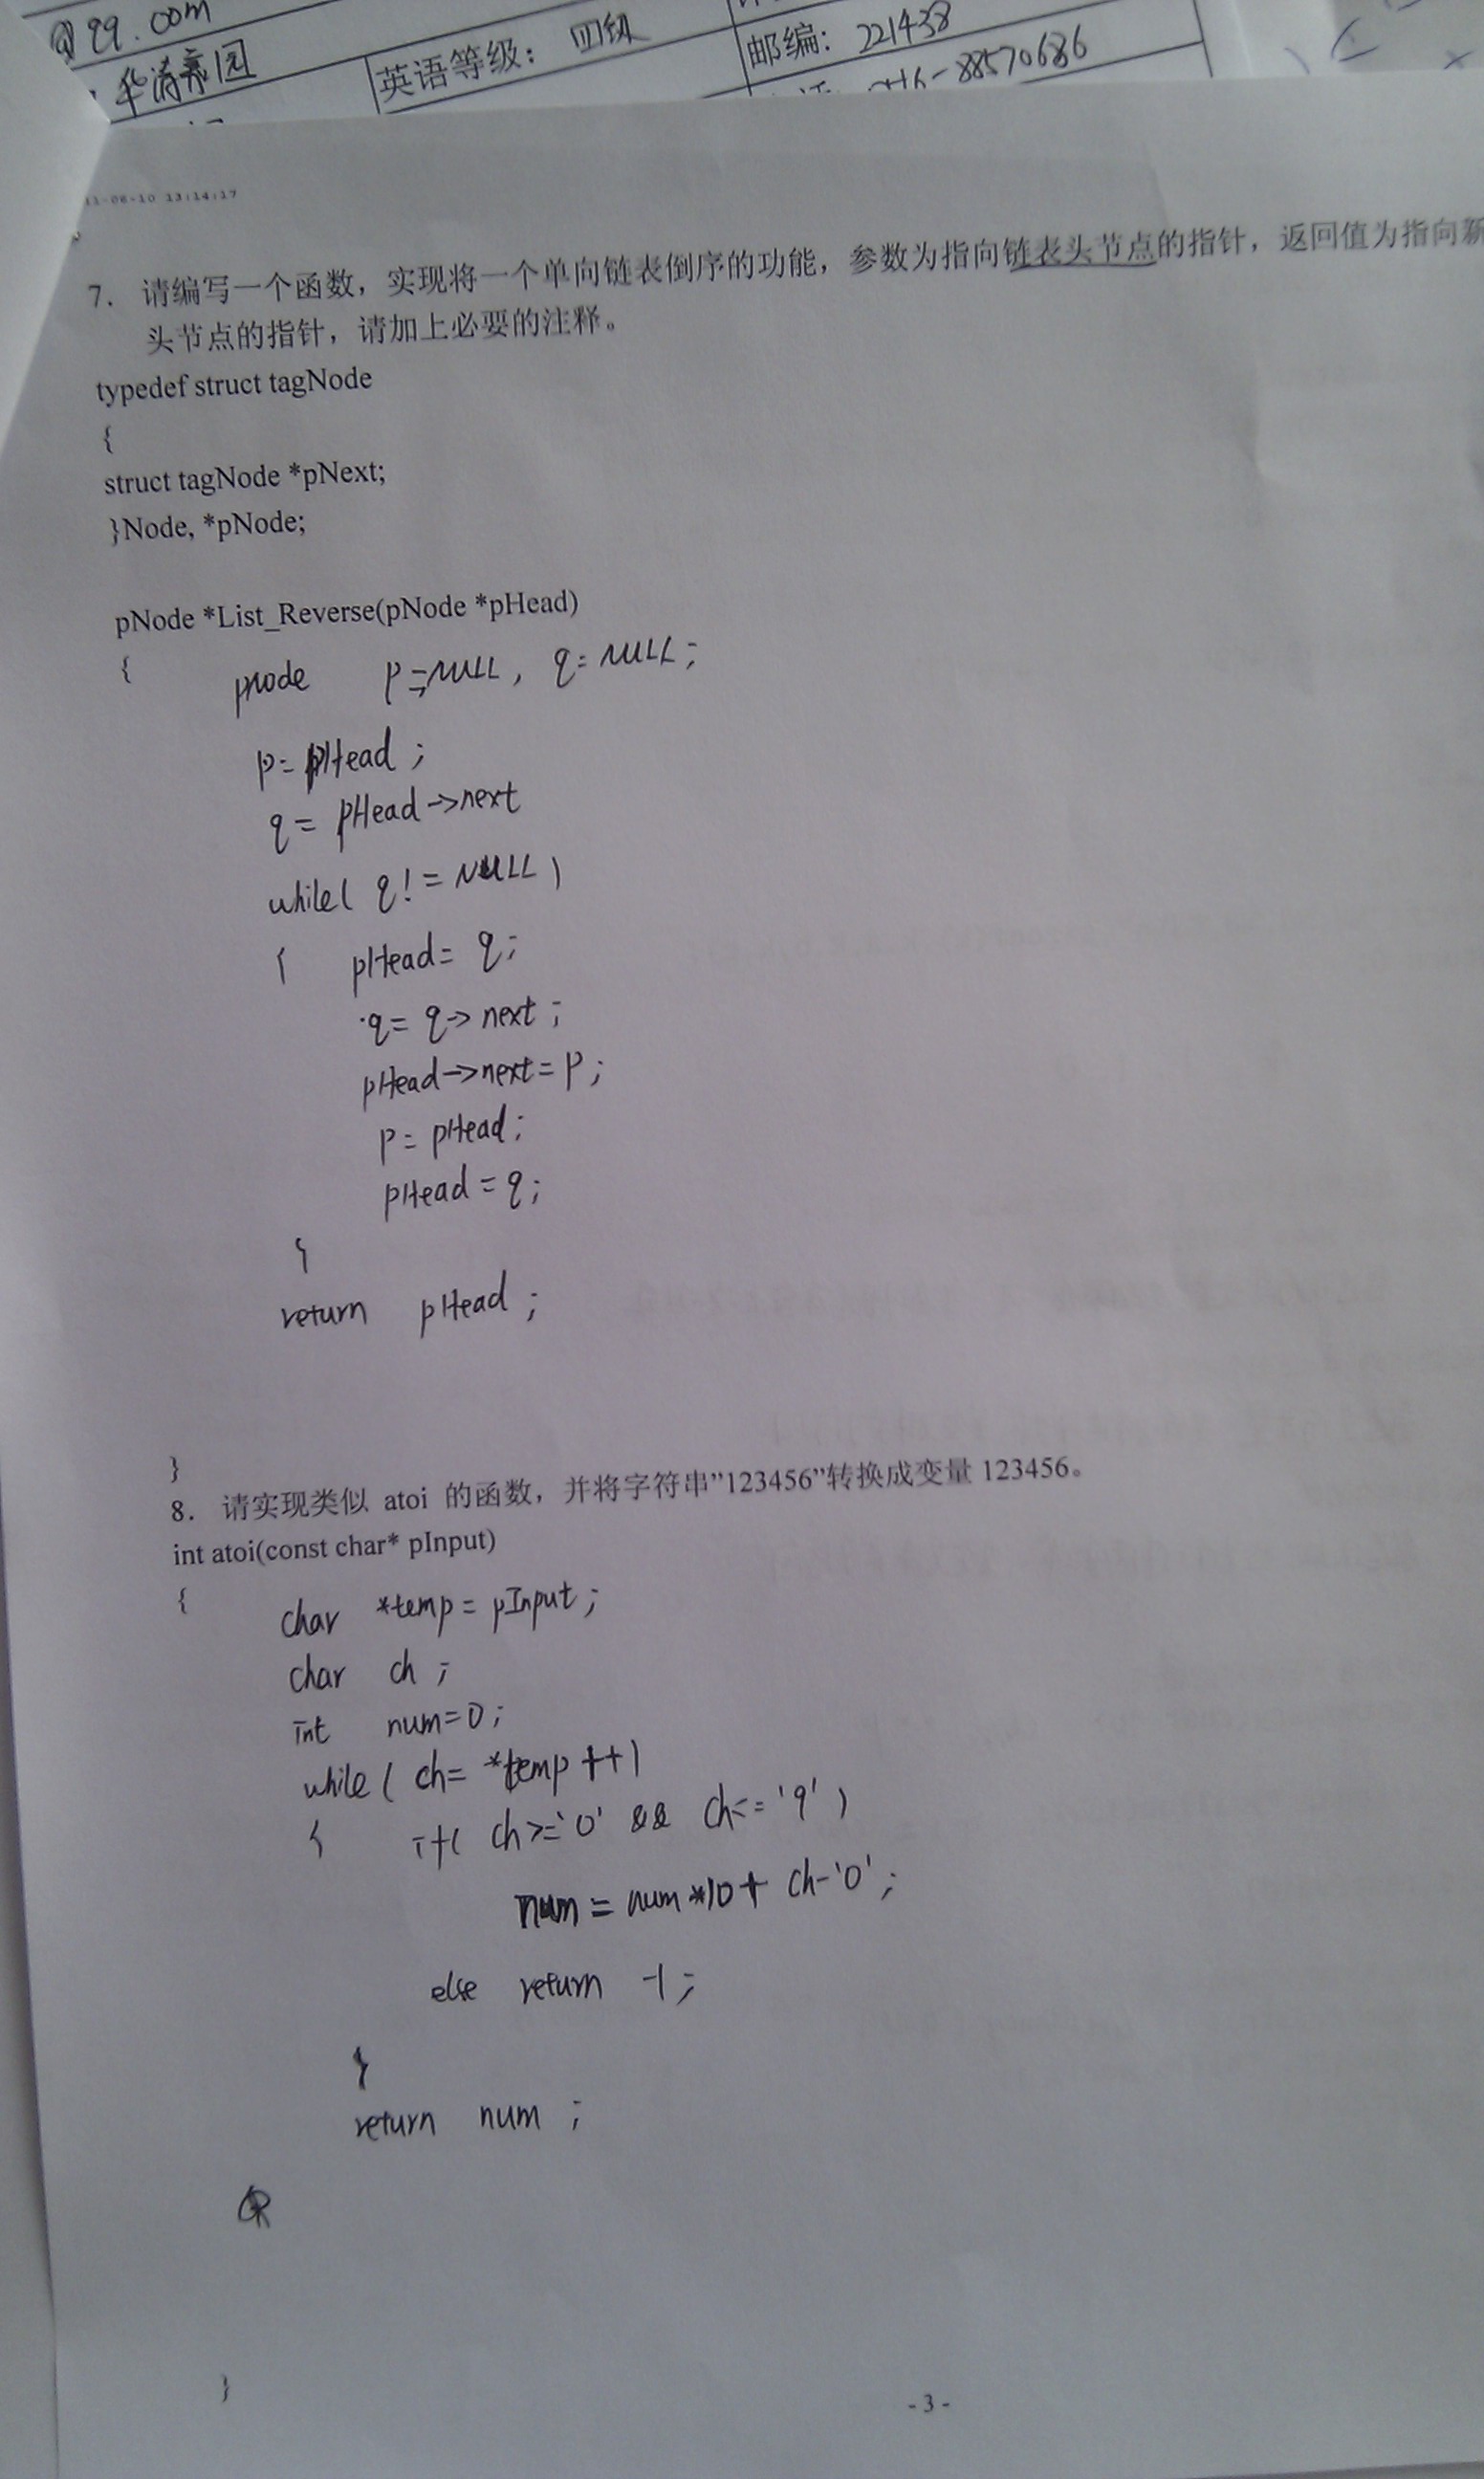 @99.com
华清嘉园
英语等级: 四级
邮编: 221438
-88570686
11-06-10 13:14:17
7. 请编写一个函数，实现将一个单向链表倒序的功能，参数为指向链表头节点的指针，返回值为指向新
头节点的指针，请加上必要的注释。
typedef struct tagNode
{
struct tagNode *pNext;
}Node, *pNode;
pNode *List_Reverse(pNode *pHead)
{ pnode p=NULL, q=NULL;
p= pHead ;
q= pHead->next
while( q!=NULL)
{ pHead= q;
q= q->next ;
pHead->next=p;
p= pHead;
pHead=q;
}
return pHead ;
}
8. 请实现类似 atoi 的函数，并将字符串”123456”转换成变量 123456。
int atoi(const char* pInput)
{ char *temp= pInput;
char ch ;
int num=0;
while( ch= *temp++)
{ if( ch>='0' && ch<='9')
num= num*10+ ch-'0';
else return -1;
}
return num ;
}
- 3 -